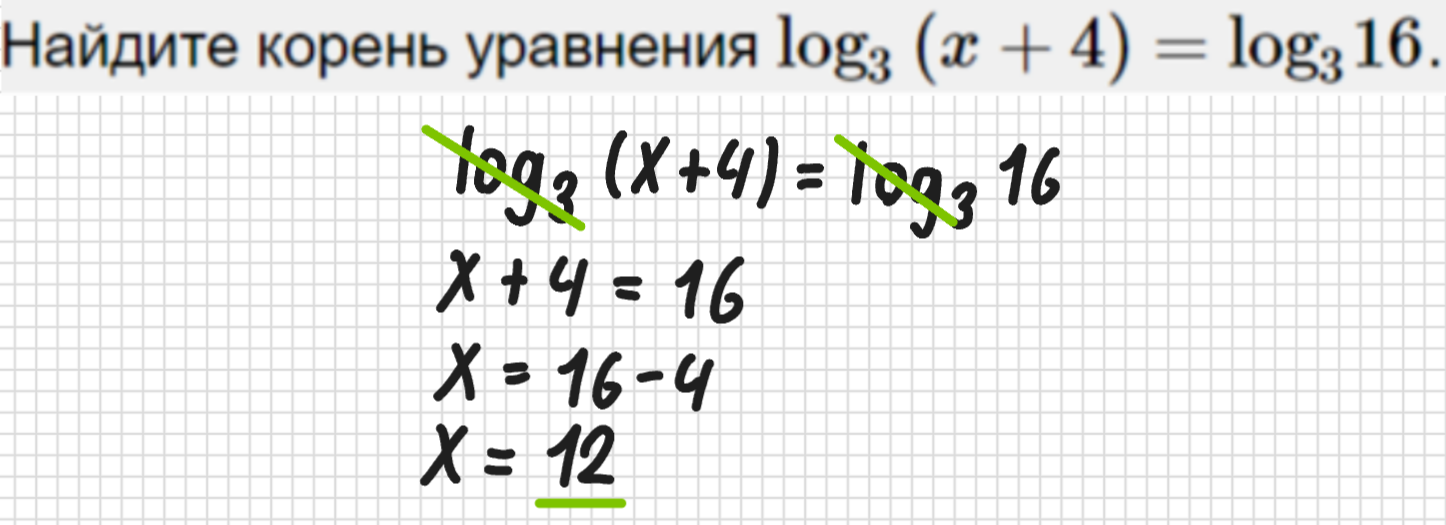 Найдите корень уравнения log₃ (x + 4) = log₃ 16.
log₃ (x+4) = log₃ 16
x + 4 = 16
x = 16 - 4
x = 12